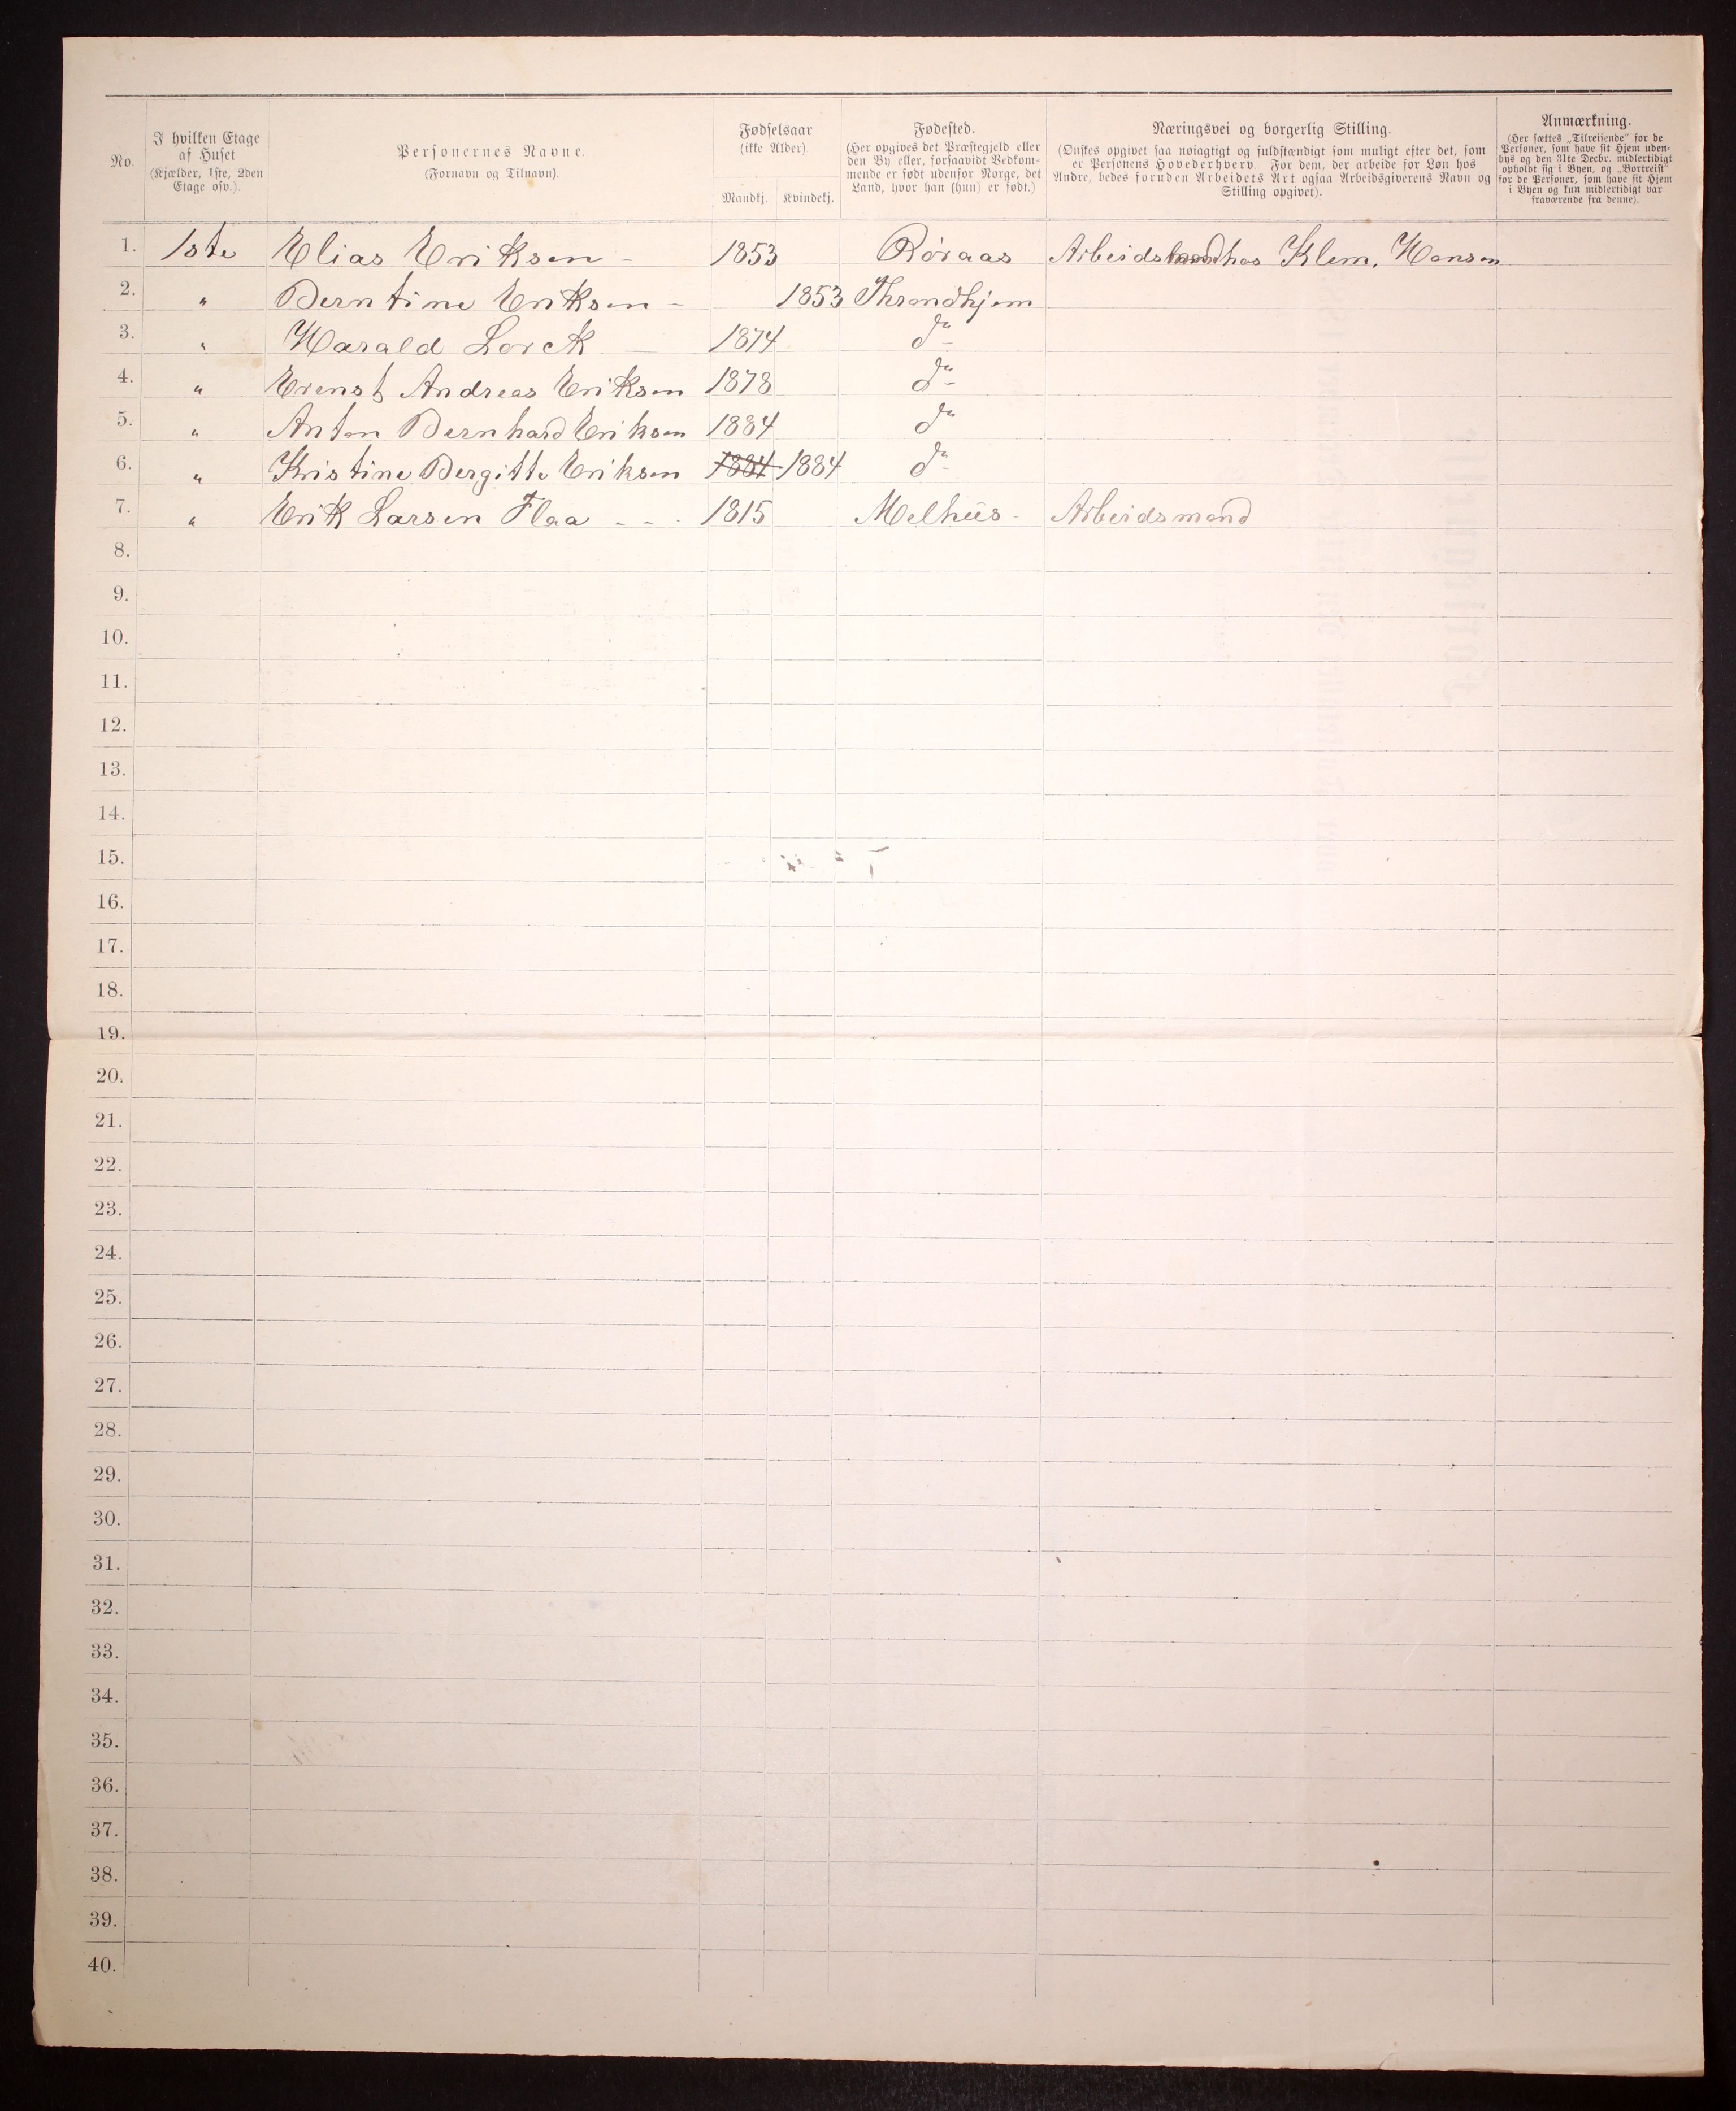 No.
I hvilken Etage
af Huset
(Kjælder, 1ste, 2den
Etage osv.).
Personernes Navne.
(Fornavn og Tilnavn).
Fødselsaar
(ikke Alder).
Mandkj. Kvindekj.
Fødested.
(Her opgives det Præstegjeld eller
den By eller, forsaavidt Vedkom-
mende er født udenfor Norge, det
Land, hvor han (hun) er født.)
Næringsvei og borgerlig Stilling.
(Ønskes opgivet saa nøiagtigt og fuldstændigt som muligt efter det, som
er Personens Hovederhverv. For dem, der arbeide for Løn hos
Andre, bedes foruden Arbeidets Art ogsaa Arbeidsgiverens Navn og
Stilling opgivet).
Anmærkning.
(Her sættes „Tilreisende" for de
Personer, som have sit Hjem uden-
bys og den 31te Decbr. midlertidigt
opholdt sig i Byen, og „Bortreist"
for de Personer, som have sit Hjem
i Byen og kun midlertidigt var
fraværende fra denne).
1. 1ste Elias Eriksen - 1853 Røraas Arbeidsmand hos Klem. Hansen
2. " Berntine Eriksen - 1853 Throndhjem
3. " Harald Lorck 1874 do
4. " Erenst Andreas Eriksen 1878 do
5. " Anton Bernhard Eriksen 1884 do
6. " Kristine Bergitte Eriksen 1884 1884 do
7. " Erik Larsen Flaa - - . 1815 Melhus - Arbeidsmand
8.
9.
10.
11.
12.
13.
14.
15.
16.
17.
18.
19.
20.
21.
22.
23.
24.
25.
26.
27.
28.
29.
30.
31.
32.
33.
34.
35.
36.
37.
38.
39.
40.